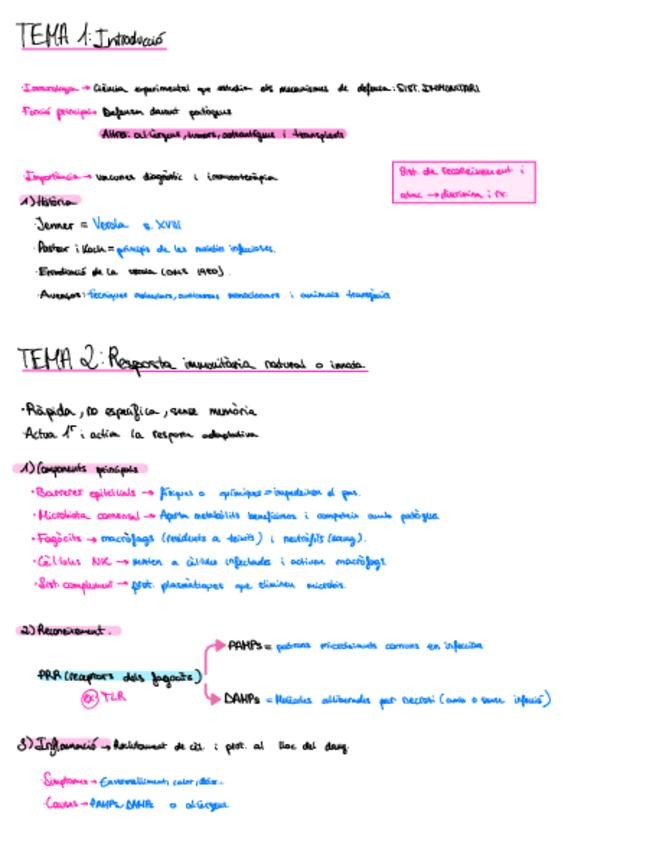 TEMA 1: Introducció
·Immunologia → Ciència experimental que estudia els mecanismes de defensa: SIST. IMMUNITARI
Funció principal: Defensa davant patògens
Altres: al·lèrgens, tumors, autoantígens i transplants
·Importància → vacunes diagnòstic i immunoteràpia
Sist. de reconeixement i
atac → discrimina i rx.
1) Història
·Jenner = Verola s. XVIII
·Pasteur i Koch = principis de les malalties infeccioses.
·Erradicació de la verola (OMS 1980).
·Avenços: tècniques moleculars, anticossos monoclonals i animals transgènics
TEMA 2: Resposta immunitària natural o innata
·Ràpida, no específica, sense memòria
·Actua 1r i activa la resposta adaptativa
1) Components principals
·Barreres epitelials → físiques o químiques = impedeixen el pas.
·Microbiota comensal → Aporta metabòlits beneficiosos i competeix amb patògens
·Fagòcits → macròfags (residents a teixits) i neutròfils (sang).
·Cèl·lules NK → maten a cèl·lules infectades i activen macròfags
·Sist. complement → prot. plasmàtiques que eliminen microbis.
2) Reconeixement.
PAMPs = patrons microbians comuns en infeccions
PRR (receptors dels fagòcits)
ex TLR
DAMPs = Molècules alliberades per necrosi (amb o sense infecció)
3) Inflamació → Reclutament de cèl. i prot. al lloc del dany.
·Símptomes → Envermelliment, calor, dolor.
·Causes → PAMPs, DAMPs o al·lèrgens